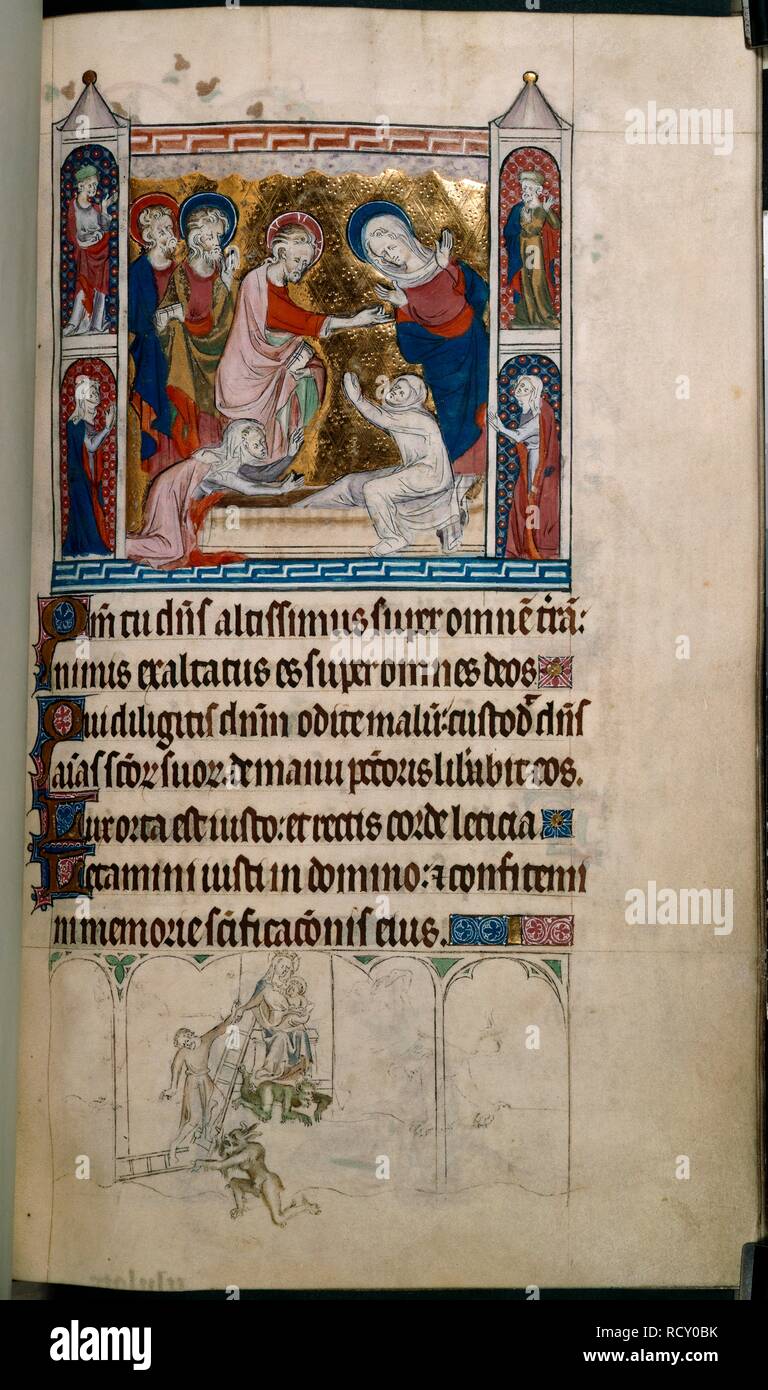 Qm̄ tu dn̄s altissimus super omnē t̄rā:
nimis exaltatus es super omnes deos
Qui diligitis dnm̄ odite malū: custod̄ dn̄s
aīas sc̄oꝝ suoꝝ: de manu pctōris lib̄abit eos.
Lux orta est iusto: et rectis corde leticia
Letamini iusti in domino: ⁊ confitemi
ni memorie sc̄ificac̄onis eius.
alamy
Image ID: RCY0BK
www.alamy.com